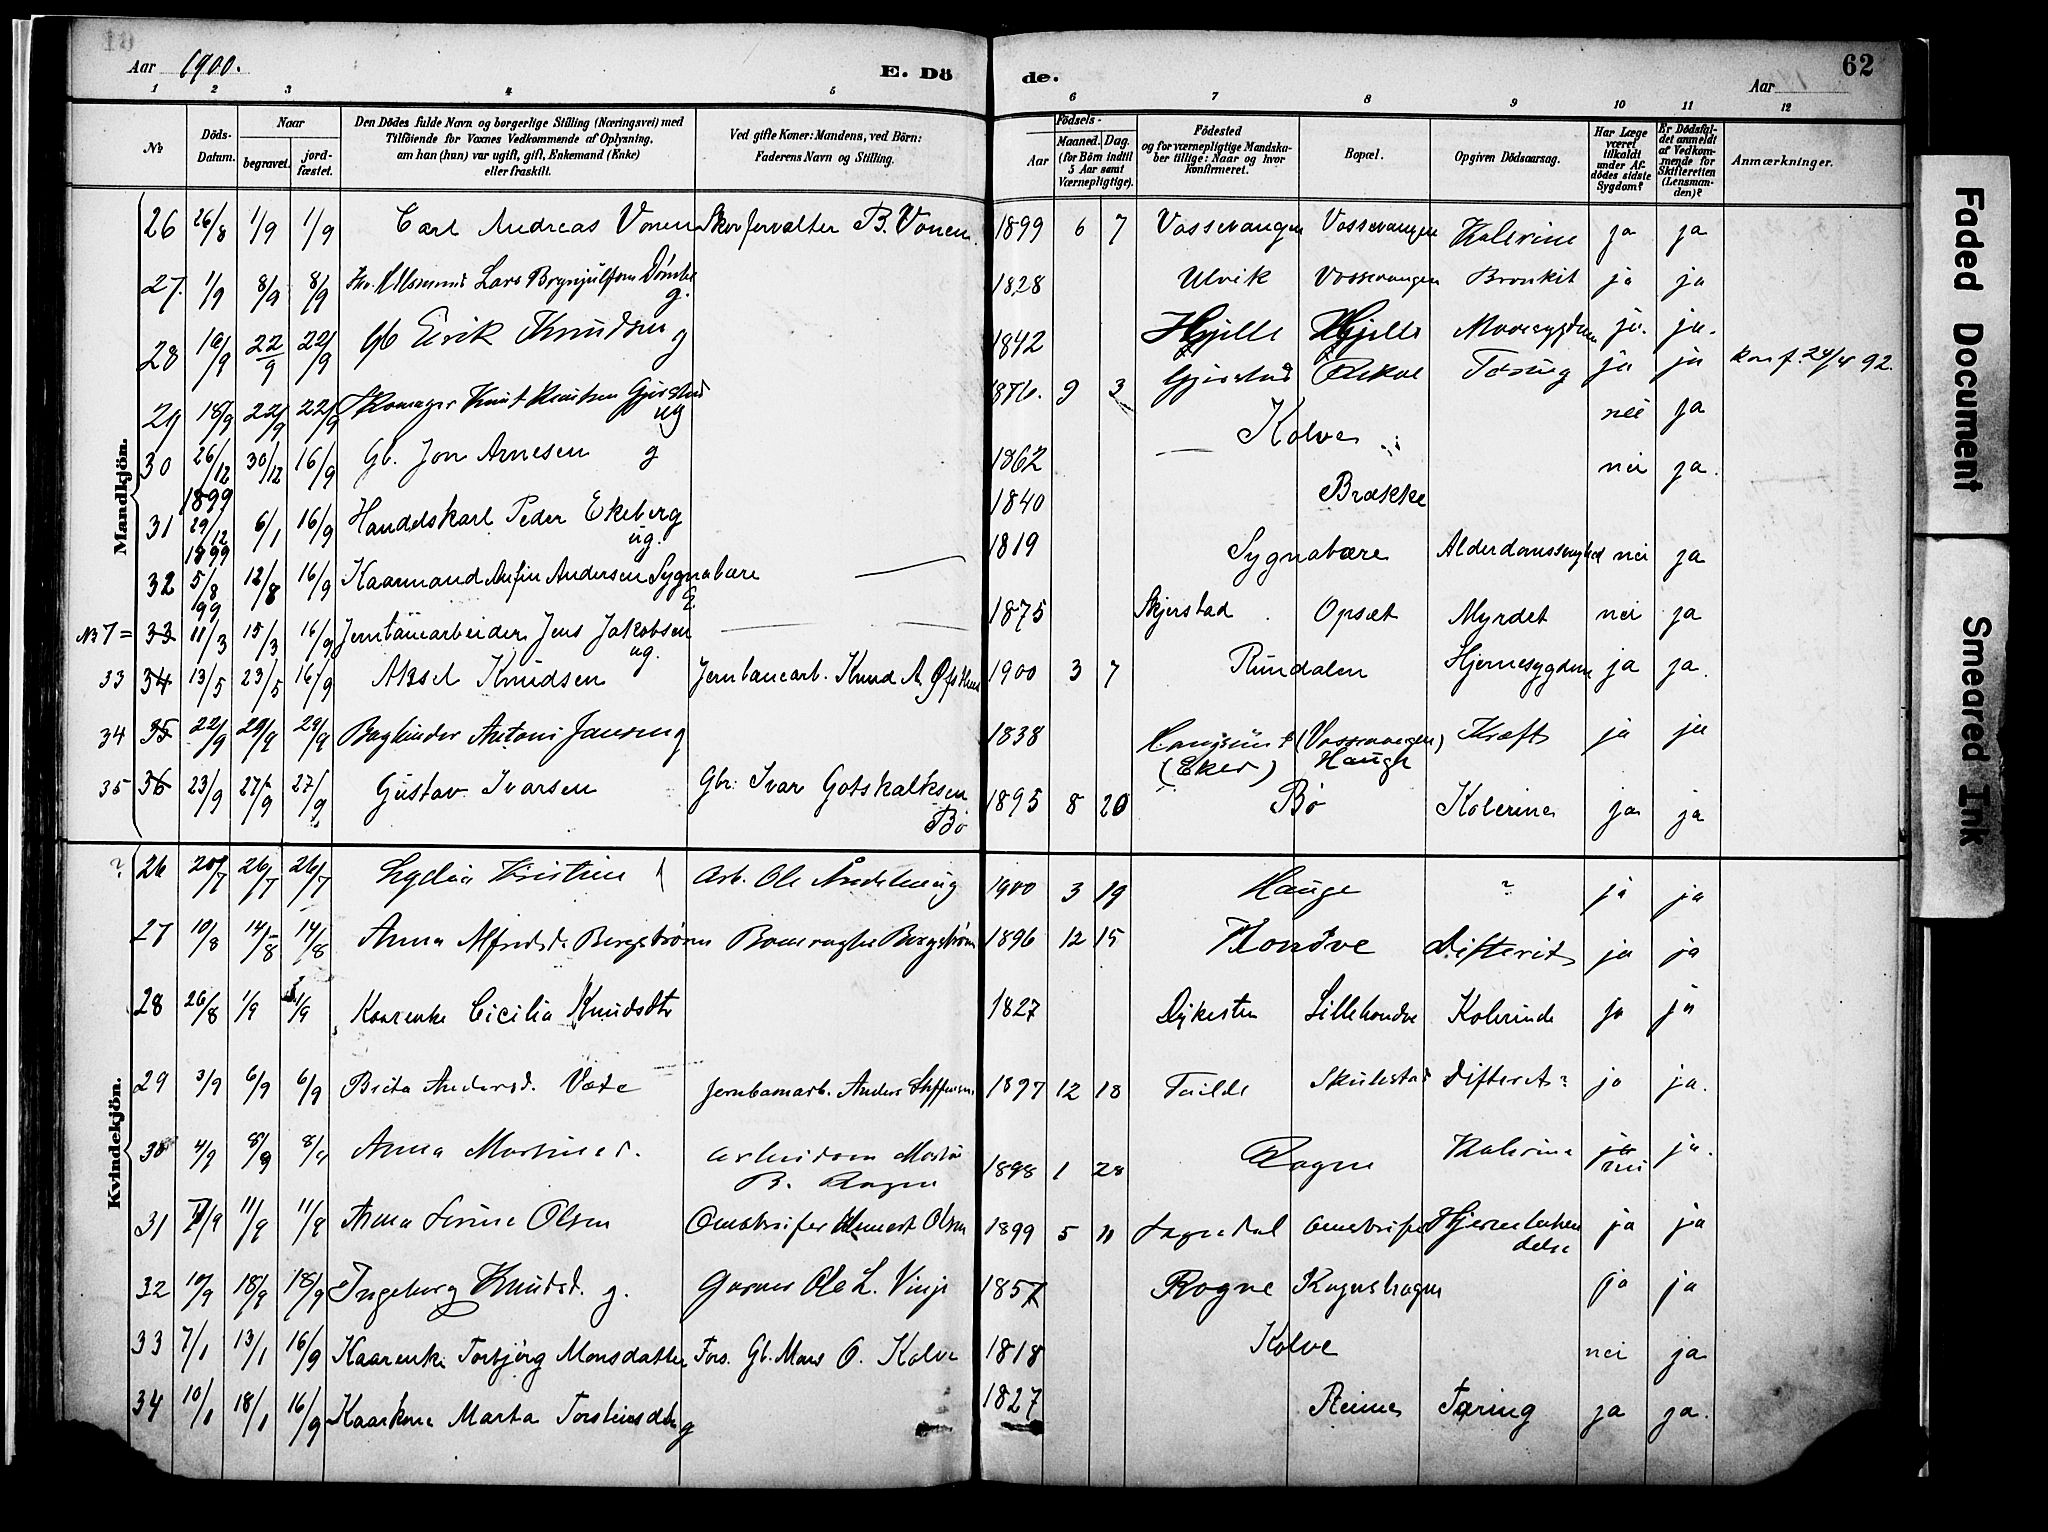 Aar 1900.
E. Dö
de.
Aar
62
1 2 3 4 5 6 7 8 9 10 11 12
№
Döds-Datum.
Naar
begravet.
jord-fæstet.
Den Dödes fulde Navn og borgerlige Stilling (Næringsvei) med
Tilföiende for Voxnes Vedkommende af Oplysning,
om han (hun) var ugift, gift, Enkemand (Enke)
eller fraskilt.
Ved gifte Koner: Mandens, ved Börn:
Faderens Navn og Stilling.
Födsels-
Aar
Maaned. Dag.
(for Börn indtil
5 Aar samt
Værnepligtige).
Födested
og for værnepligtige Mandska-
ber tillige: Naar og hvor
konfirmeret.
Bopæl.
Opgiven Dödsaarsag.
Har Læge
været
tilkaldt
under Af-
dödes sidste
Sygdom?
Er Dödsfal-
det anmeldt
af Vedkom-
mende for
Skifteretten
(Lensman-
den)?
Anmærkninger.
Mandkjön.
26 26/8 1/9 1/9 Carl Andreas Vonen Skovforvalter B. Vonen. 1899 6 7 Vossevangen Vossevangen Kolerine ja ja
27. 1/9 8/9 8/9 Lars Brynjulfsen g. 1828 Ulvik Vossevangen Bronkit ja ja
28 16/9 22/9 22/9 Gb Eirik Knudsen g 1842 Hjelle Hjelle Mavesygdom ja. ja.
29 18/9 22/9 22/9 Skomager Knut Knutsen Gjerstad ug 1876. 9 3 Gjerstad Rekve Tæring ja ja konf. 24/4 92.
30 26/12 1899 30/12 16/9 Gb. Jon Arnesen g 1862 Kolve nei ja
31 29/12 1899 6/1 16/9 Handelskarl Peder Ekeberg ug. 1840 Brække nei ja.
32 5/8 99 12/8 16/9 Kaarmand Anfin Andersen Sygnabære E 1819 Sygnabære Alderdomssvaghed nei ja
№ 7 = 33 11/3 15/3 16/9 Jernbanearbeider Jens Jakobsen ug. 1875 Skjerstad Opsæt Myrdet nei ja
33 34 13/5 23/5 16/9 Aksel Knudsen Jernbanearb. Knud A. 1900 3 7 Rundalen Hjernesygdom ja ja.
34 35 22/9 29/9 29/9 Bogbinder Antoni Jansen g 1838 (Eker) (Vossevangen) Haugh Kræft ja ja
35 36 23/9 27/9 27/9 Gustav Ivarsen Gbr. Ivar Gotskalksen Bö 1895 8 20 Bö Kolerine ja ja
Kvindekjön.
? 26 20/7 26/7 26/7 Lydia Kristine Arb. Ole 1900 3 19 Hauge ? ja ja
27 10/8 14/8 14/8 Anna Alfredsd. Bergström Bergström 1896 12 15 Hondve Difterit ja ja
28 26/8 1/9 1/9 Kaarenke Cicilia Knudsdtr 1827 Dykesten Lillehondve Kolerine ja ja
29 3/9 6/9 6/9 Brita Andersd. Væte Jernbanearb. Anders Steffensen 1897 12 18 Tvilde Skulestad Difterit? ja ja.
30 4/9 8/9 8/9 Anna Martines. B. Rogne 1898 1 28 Rogne Kolerine nei ja.
31 7/9 11/9 11/9 Anna Serine Olsen Omstreifer Olsen 1899 5 11 Sogndal Omstreifer Hjernebetæn delse ja ja
32 10/9 18/9 18/9 Ingeborg Knudsd. g. Garver Ole L. Vinje 1857 Rogne Rognshagen ja ja
33 7/1 13/1 16/9 Kaarenke Torbjörg Monsdatter Fors. Gb. Mons O. Kolve 1818 Kolve nei ja
34 10/1 18/1 16/9 Kaarkone Marta Torsteinsdtr g 1827 Reime Tæring ja ja.
Faded Document
Smeared Ink